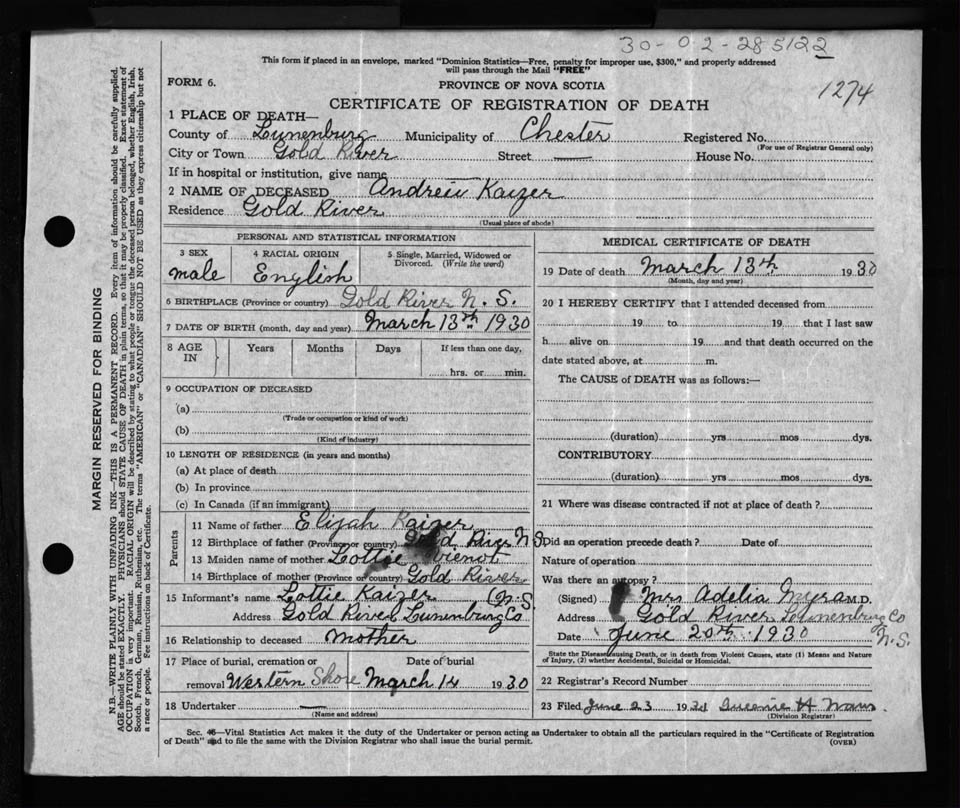 30-02-285122
1274
This form if placed in an envelope, marked "Dominion Statistics—Free, penalty for improper use, $300," and properly addressed
will pass through the Mail "FREE"
FORM 6.
PROVINCE OF NOVA SCOTIA
CERTIFICATE OF REGISTRATION OF DEATH
1 PLACE OF DEATH—
County of Lunenburg Municipality of Chester Registered No.
(For use of Registrar General only)
City or Town Gold River Street — House No.
If in hospital or institution, give name
2 NAME OF DECEASED Andrew Kaizer
Residence Gold River
(Usual place of abode)
PERSONAL AND STATISTICAL INFORMATION
3 SEX 4 RACIAL ORIGIN 5 Single, Married, Widowed or
Divorced. (Write the word)
male English
6 BIRTHPLACE (Province or country) Gold River N. S.
7 DATE OF BIRTH (month, day and year) March 13th 1930
8 AGE IN Years Months Days If less than one day,
hrs. or min.
9 OCCUPATION OF DECEASED
(a)
(Trade or occupation or kind of work)
(b)
(Kind of industry)
10 LENGTH OF RESIDENCE (in years and months)
(a) At place of death
(b) In province
(c) In Canada (if an immigrant)
Parents
11 Name of father Elijah Kaizer
12 Birthplace of father (Province or country) Gold River N S
13 Maiden name of mother Lottie Vienot
14 Birthplace of mother (Province or country) Gold River
15 Informant's name Lottie Kaizer (N. S.
Address Gold River Lunenburg Co
16 Relationship to deceased mother
17 Place of burial, cremation or Date of burial
removal Western Shore March 14 1930
18 Undertaker —
(Name and address)
MEDICAL CERTIFICATE OF DEATH
19 Date of death March 13th 1930
(Month, day and year)
20 I HEREBY CERTIFY that I attended deceased from
19 to 19 that I last saw
h alive on 19 and that death occurred on the
date stated above, at m.
The CAUSE of DEATH was as follows:—
(duration) yrs mos dys.
CONTRIBUTORY
(duration) yrs mos dys.
21 Where was disease contracted if not at place of death?
Did an operation precede death? Date of
Nature of operation
Was there an autopsy?
(Signed) Mrs Adelia Myra M.D.
Address Gold River Lunenburg Co
Date June 20th 1930 N. S.
State the Disease causing Death, or in death from Violent Causes, state (1) Means and Nature
of Injury, (2) whether Accidental, Suicidal or Homicidal.
22 Registrar's Record Number
23 Filed June 23 19 H
(Division Registrar)
Sec. 46—Vital Statistics Act makes it the duty of the Undertaker or person acting as Undertaker to obtain all the particulars required in the "Certificate of Registration
of Death" and to file the same with the Division Registrar who shall issue the burial permit.
(OVER)
MARGIN RESERVED FOR BINDING
N.B.—WRITE PLAINLY WITH UNFADING INK—THIS IS A PERMANENT RECORD. Every item of information should be carefully supplied.
AGE should be stated EXACTLY. PHYSICIANS should STATE CAUSE OF DEATH in plain terms, so that it may be properly classified. Exact statement of
OCCUPATION is very important. RACIAL ORIGIN will be described by stating to what people or tongue the deceased person belonged, whether English, Irish,
Scotch, French, German, Russian, Ruthenian, etc. The terms "AMERICAN" or "CANADIAN" SHOULD NOT BE USED as they express citizenship but not
a race or people. Fee instructions on back of Certificate.